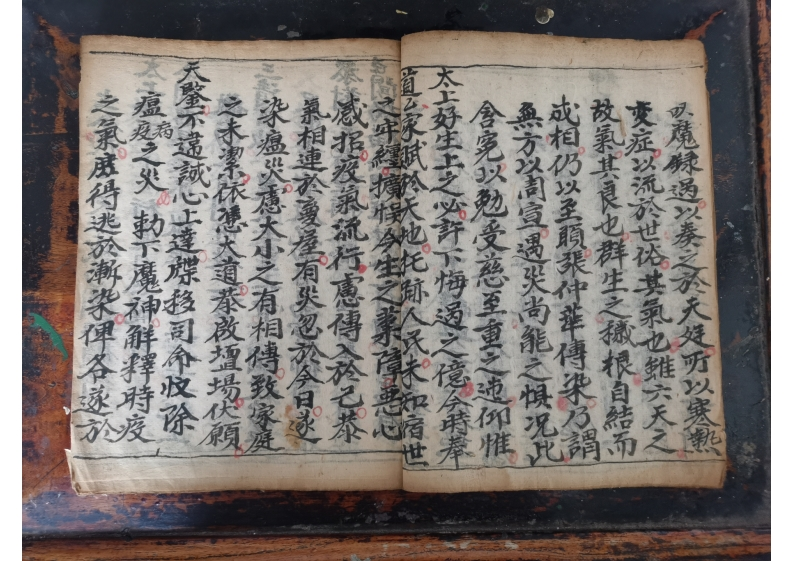 魔錄過以奏之於天庭所以寒熱
变症以流於世俗其氣也雖六天之
故氣其良也群生之攝根自結而
成相仍以至頤張仲華傳染乃謂
無方以周宣遇災尚能之惧况此
含冤以勉受慈至重之述仰惟
太上好生上之必許下悔過之億今時奉
道厶家賦於天地托跡人民未知宿世
之牢經擴悞今生之業障惡心
感招疫氣流行慮傳入於己恭
氣相連於屋有災忽於今日遂
染瘟災慮大小之有相傳致家庭
之未潔依憑大道恭啟壇場伏願
天鑒不違誠心上達牒移司命收除
瘟疫病之災勅下魔神解釋時疫
之氣庶得逃於漸染俾各遂於